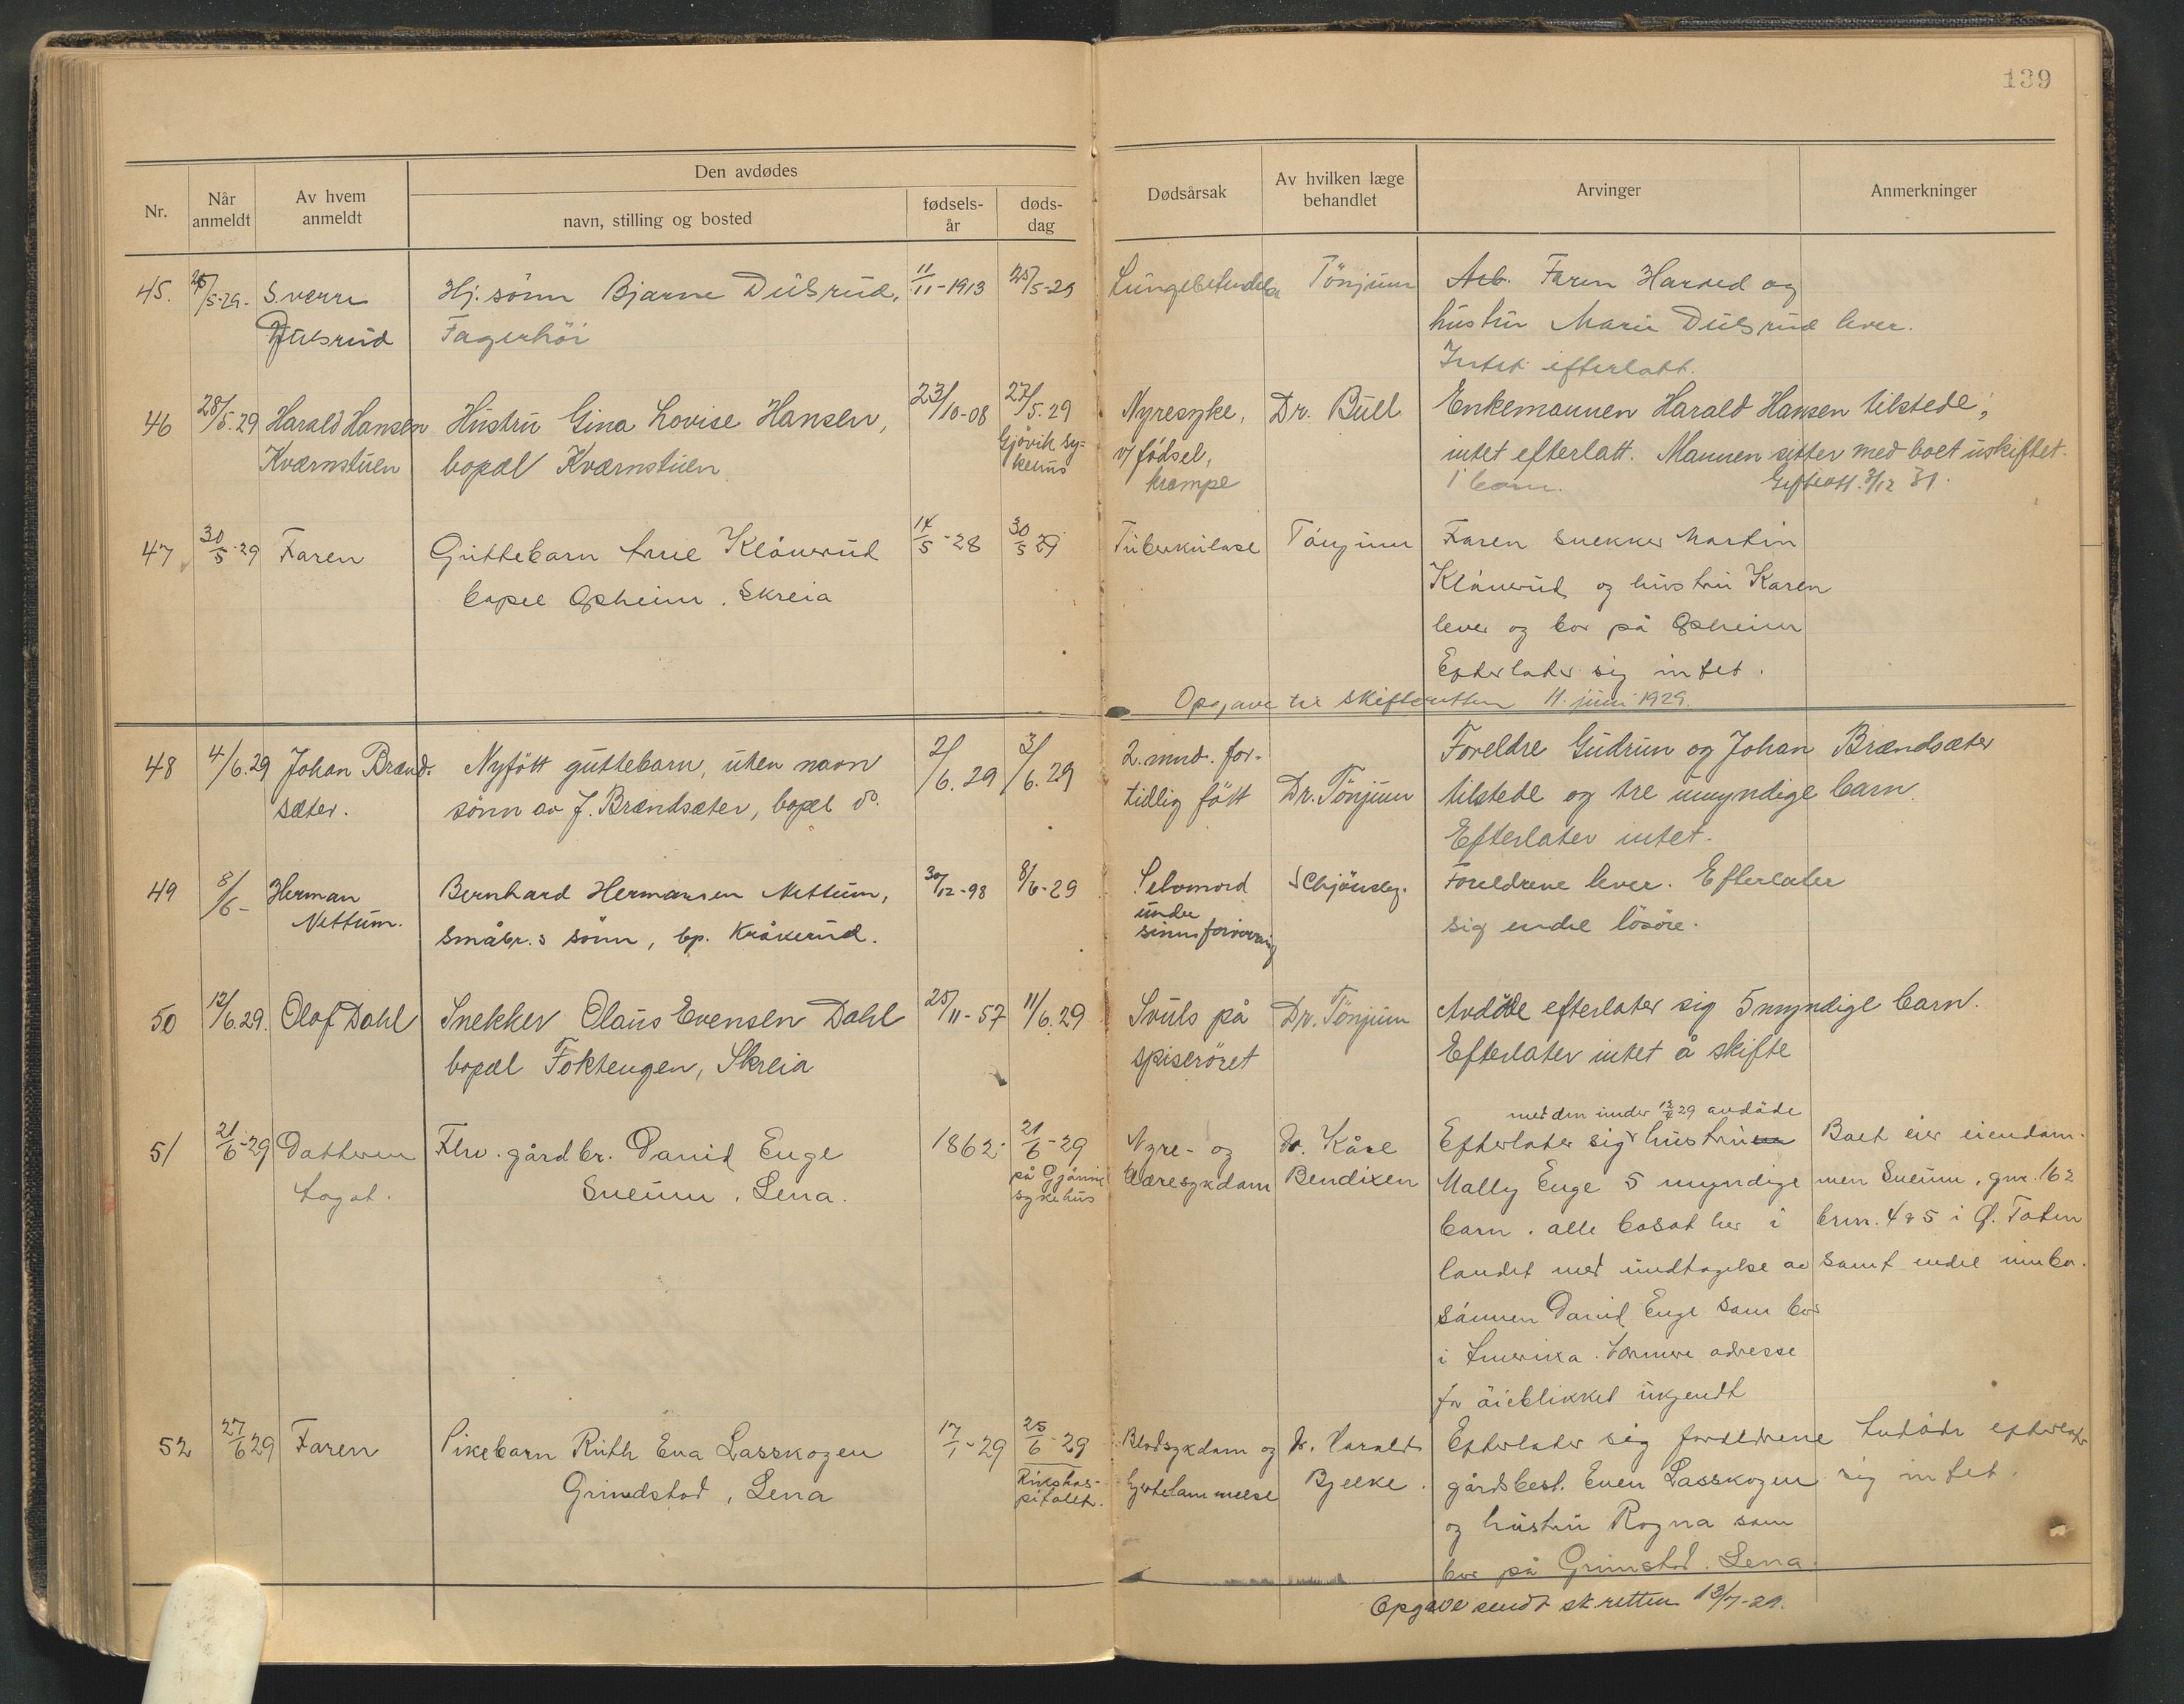 139
Den avdødes
Nr.
Når anmeldt
Av hvem anmeldt
navn, stilling og bosted
fødsels-år
døds-dag
Dødsårsak
Av hvilken læge behandlet
Arvinger
Anmerkninger
45. 25/5-29. Sverre Hj. sönn Bjarne Dülsrud, 11/11-1913 25/5-29 Lungebetendelse Tönjum Arb. Faren Harald og
Dulsrud Fagerhöi hustru Marie Dülsrud lever.
Intet efterlatt.
46 28/5.29 Harald Hansen Hustru Gina Lovise Hansen, 23/10-08 27/5.29 Nyresyke, Dr. Bull Enkemannen Harald Hansen tilstede;
Kværnstuen bopæl Kværnstuen Gjövik sy- v/ fødsel, intet efterlatt. Mannen sitter med boet uskiftet.
kehus krampe 1 barn. 31.
47 30/5-29 Faren Guttebarn Klönerud 14/5-28 30/5 29 Tuberkulose Tönjum Faren snekker Martin
bopel Opheim. Skreia Klönerud og hustru Karen
lever og bor på Opheim
Efterlater sig intet.
Opgave til skifteretten 11. juni 1929.
48 4/6.29 Johan Brænd- Nyfött guttebarn, uten navn 2/6.29 3/6.29 2. mnd. for- Foreldre Gudrun og Johan Brændsæter
sæter. sönn av J. Brændsæter, bopel do. tidlig fött Dr. Tönjum tilstede og tre umyndige barn.
Efterlater intet.
49 8/6- Herman Bernhard Hermansen Nettum, 30/12-98 8/6-29 Selvmord Schjönsby. Foreldrene lever. Efterlater
Nettum. småbr.s sönn, bp. Kråkerud. under sig endel lösöre.
sinnsforvirring
50 12/6.29. Olaf Dahl Snekker Olaus Evensen Dahl 25/11-57 11/6.29 Svuls på Dr. Tönjum Avdöde efterlater sig 5 myndige barn.
bopæl Foktengen, Skreia spiseröret Efterlater intet å skifte
med den under 12/4 29 avdöde
51 21/6-29 Datteren Fhv. gårdbr. David Enge 1862- 21/6-29 Nyre- og Dr. Kåre Efterlater sig hustru Boet eier eiendom-
Lagat. Sneum. Lena. på Gjövik Blæresykdom Bendixen Mally Enge 5 myndige men Sneum, gnr. 162
sykehus barn. alle bosat her i brnr. 4 & 5 i Ø. Toten
landet med undtagelse av samt endel innbo.
sönnen David Enge som bor
i Amerika. Nærmere adresse
for öieblikket ukjendt
52 27/6 29 Faren Pikebarn Ruth Eva Lasskogen 17/1-29 25/6-29 Blodsykdom og Dr. Harald Efterlater sig foreldrene Avdöde efterlater
Grimdstad, Lena Rikshos- hjertelammelse Bjelke. gårdsbest. Even Lasskogen sig intet.
pitalet. og hustru Ragna som
bor på Grimstad. Lena.
Opgave sendt sk.retten 12/7-29.